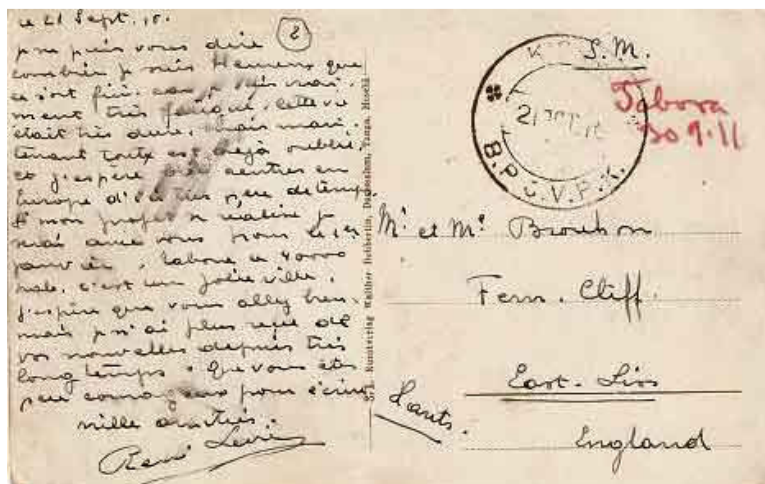 le 21 Sept. 16.
2
je ne puis vous dire
combien je suis Heureux que
ce soit fini, car je suis vrai-
ment très fatigué. Cette vie
était très dure. Mais main-
tenant tout est déjà oublié
et j'espère rentrer en
Europe d'ici très peu de temps
Si mon projet se réalise je
serai avec vous pour le 1er
janvier. Tabora a 40000
hab. c'est une jolie ville.
J'espère que vous allez bien.
mais je n'ai plus reçu de
vos nouvelles depuis très
longtemps. Que vous êtes
peu courageux pour écrire
mille amitiés.
René
Kunstverlag Walther Dobbertin, Daressalam, Tanga, Moschi
S.M.
B.P.C.V.P.K.
Tabora
30 9.
Mr et Me
Fern. Cliff.
East-Liss
Hants.
England